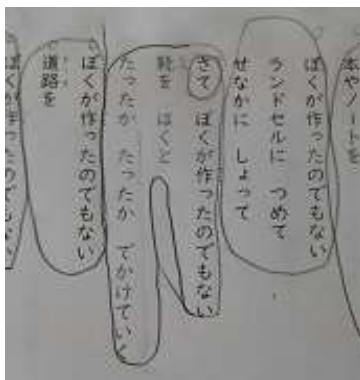 本やノートを
ぼくが作ったのでもない
ランドセルに つめて
せなかに しょって
さて ぼくが作ったのでもない
靴を はくと
たったか たったか でかけていく
ぼくが作ったのでもない
道路を
ぼくが作ったのでもない